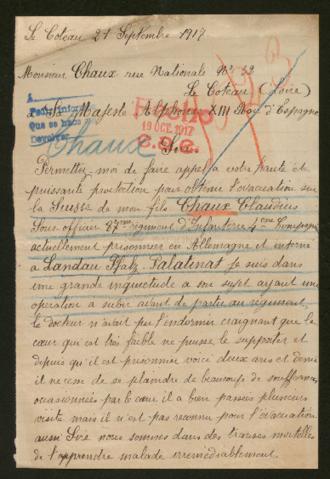 Le Coteau 21 Septembre 1917
Monsieur Chaux rue Nationale N° 32
Le Coteau (Loire)
à Sa Majesté Alphonse XIII Roi d'Espagne
A
Pedir informe
Que se hace
19 OCT. 1917
Chaux
Sire
Permettez moi de faire appel à votre haute et
puissante protection pour obtenir l'évacuation sur
la Suisse de mon fils Chaux Claudius
Sous officier régiment d'Infanterie 4eme Compagnie
actuellement prisonnier en Allemagne et interné
à Landau Pfalz Palatinat je suis dans
une grande inquiétude a son sujet ayant une
opération a subir avant de partir au régiment
le docteur n'avait pu l'endormir craignant que le
cœur qui est très faible ne puisse le supporter et
depuis qu'il est prisonnier voice deux ans et demi
il ne cesse de se plaindre de beaucoup de souffrances
occasionnées par le cœur il a bien passée plusieurs
visite mais il n'est pas reconnu pour l'évacuation
aussi Sire nous sommes dans des transes mortelles
de l'apprendre malade irrémédiablement.